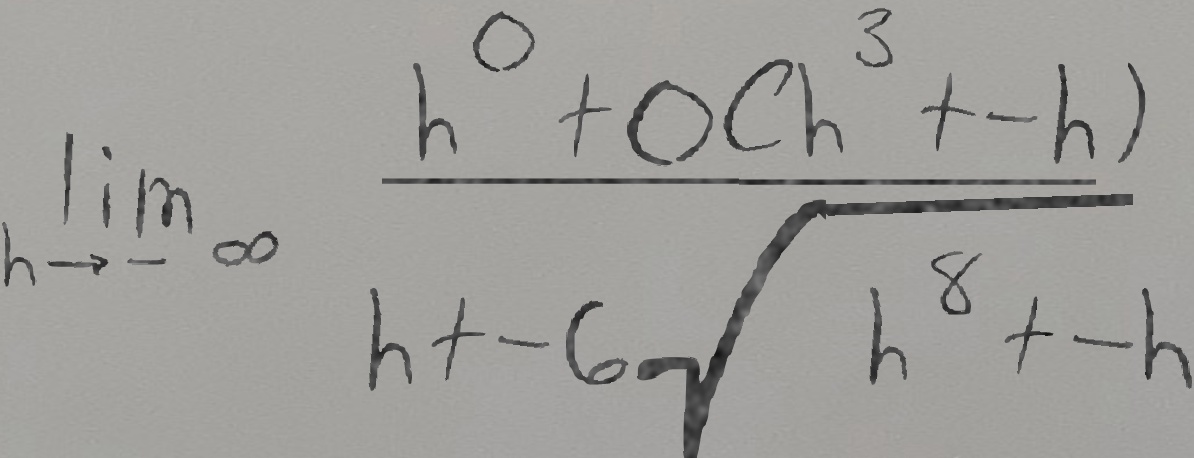 \lim_{h \to -\infty} \frac{h^{0} + 0(h^{3} + -h)}{h + -6\sqrt{h^{8} + -h}}